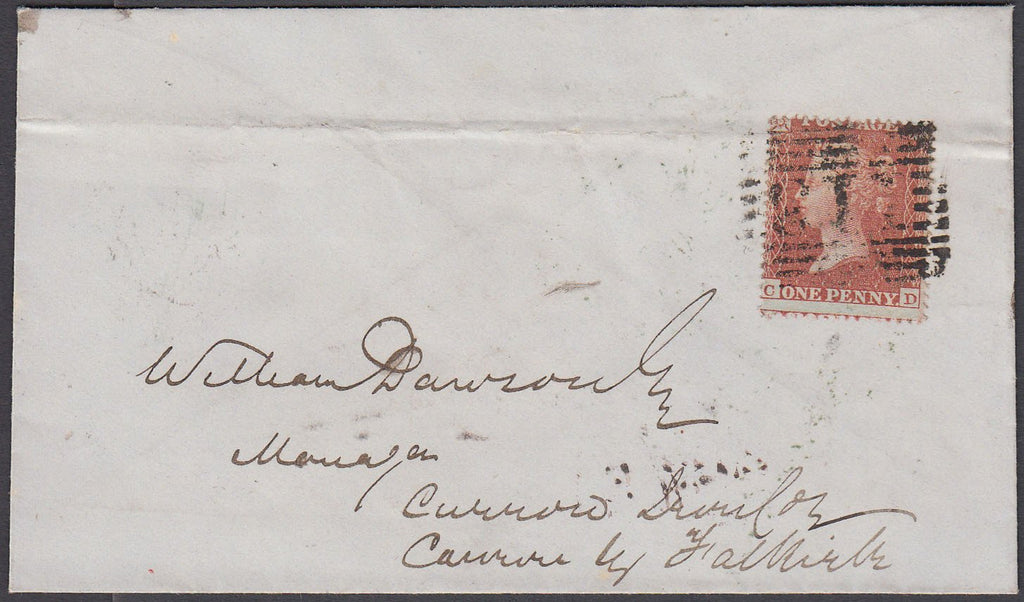 POSTAGE
C ONE PENNY. D
William Dawson Esq
Manager
Carron Iron Coy
Carron by Falkirk